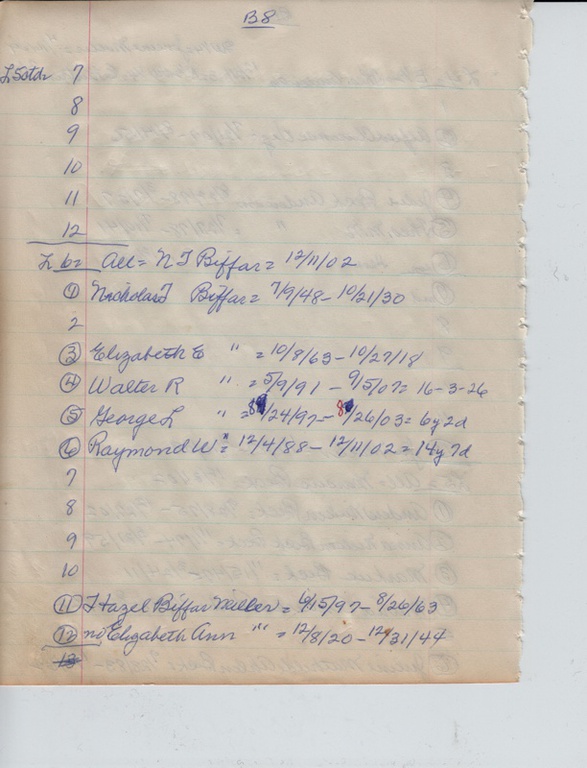 B8
L5 Ctd= 7
8
9
10
11
12
L 6= All= N J Biffar= 12/11/02
① Nicholas J Biffar= 7/9/48-10/21/30
2
③ Elizabeth E " = 10/8/63-10/27/18
④ Walter R " = 5/9/91 - 9/5/07= 16-3-26
⑤ George L " = 8/24/97- 8/26/03= 6y 2d
⑥ Raymond W " = 12/4/88 - 12/11/02= 14y 7d
7
8
9
10
⑪ Hazel Biffar Miller = 6/15/97- 8/26/63
⑫ no Elizabeth Ann "" = 12/8/20-12/31/44
13